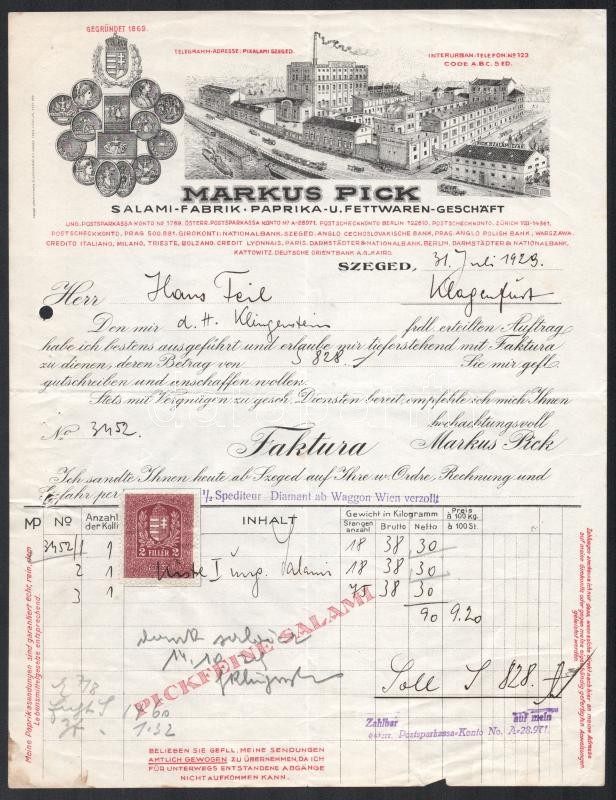 GEGRÜNDET 1869.
TELEGRAMM-ADRESSE: PIXALAMI SZEGED.
INTERURBAN-TELEFON Nº 123
CODE A.B.C. 5 ED.
MARKUS PICK
SALAMI-FABRIK · PAPRIKA- U. FETTWAREN-GESCHÄFT
UNG. POSTSPARKASSA KONTO Nº 1769. ÖSTERR. POSTSPARKASSA KONTO Nº A-28971. POSTSCHECKKONTO BERLIN 122810. POSTSCHECKKONTO. ZÜRICH VIII-14361.
POSTSCHECKKONTO, PRAG 500.881. GIROKONTI: NATIONALBANK-SZEGED. ANGLO CECHOSLOVAKISCHE BANK, PRAG. ANGLO POLISH BANK, WARSZAWA.
CREDITO ITALIANO, MILANO, TRIESTE, BOLZANO. CREDIT LYONNAIS, PARIS. DARMSTÄDTER & NATIONALBANK, BERLIN, DARMSTÄDTER & NATIONALBANK,
KATTOWITZ. DEUTSCHE ORIENTBANK A.G. KAIRO.
SZEGED, 31. Juli 1929.
Herr Hans Feil Klagenfurt
Den mir d. H. Klingenstein frdl. erteilten Auftrag
habe ich bestens ausgeführt und erlaube mir tieferstehend mit Faktura
zu dienen, deren Betrag von S 828.- Sie mir gefl.
gutschreiben und anschaffen wollen.
Stets mit Vergnügen zu gesch. Diensten bereit, empfehle ich mich Ihnen
hochachtungsvoll
No 3452. Faktura Markus Pick
Ich sandte Ihnen heute ab Szeged auf Ihre w. Ordre, Rechnung und
Gefahr per 1/2 Spediteur Diamant ab Waggon Wien verzollt
MP No Anzahl der Kolli INHALT Gewicht in Kilogramm Preis
Stangenanzahl Brutto Netto à 100 kg. à 100 St.
3452/1 1 18 38 30
2 1 Kiste I ung. Salami 18 38 30
3 1. 75 38 30
90 9.20
2 FILLÉR 2
PICKFEINE SALAMI
Soll S 828.-
1.32
Zahlbar auf mein
österr. Postsparkassa-Konto No. A-28.971.
BELIEBEN SIE GEFLL. MEINE SENDUNGEN
AMTLICH GEWOGEN ZU ÜBERNEHMEN, DA ICH
FÜR UNTERWEGS ENTSTANDENE ABGÄNGE
NICHT AUFKOMMEN KANN.
Meine Paprikasendungen sind garantiert echt, rein, den
Lebensmittelgesetze entsprechend.